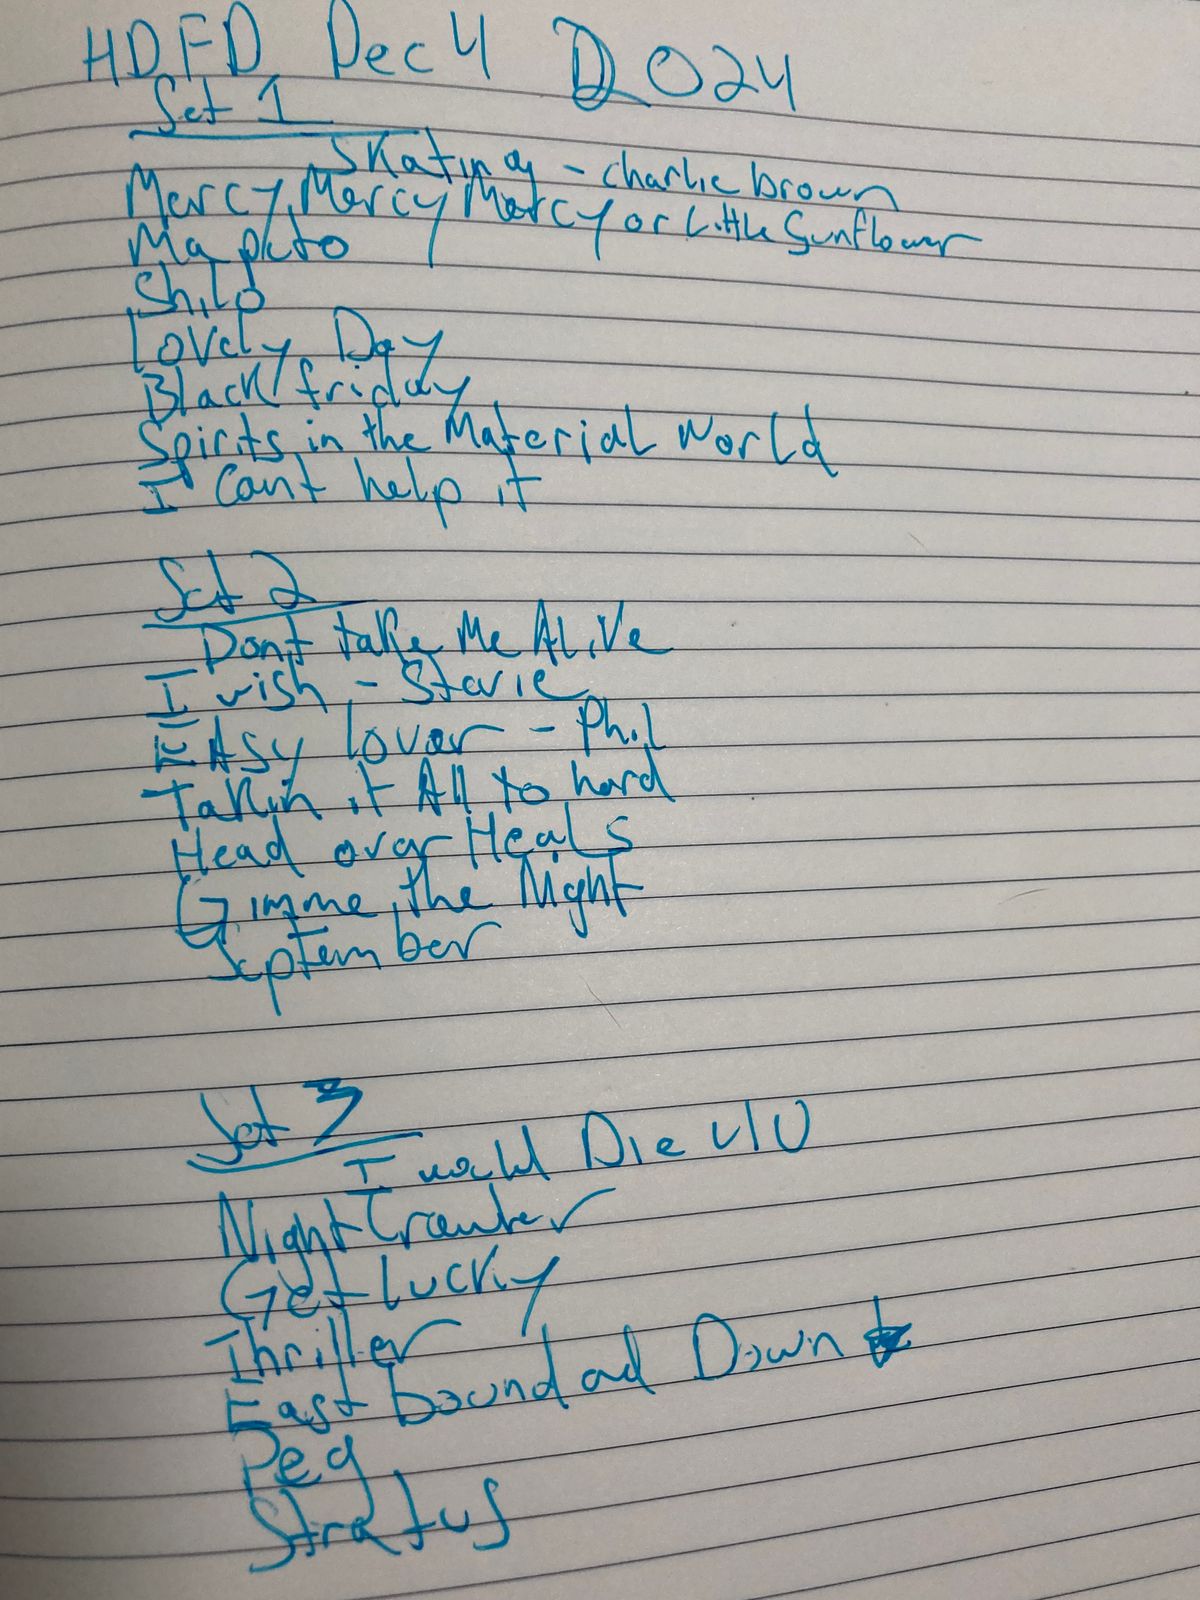 HDFD Dec 4 2024
Set 1
Skating - charlie brown
Mercy, Mercy Mercy or Little Sunflower
Maputo
Shilo
Lovely Day
Black friday
Spirits in the Material World
I Cant help it
Set 2
Dont take Me Alive
I wish - Stevie
EASy lover - Phil
Takin it All to hard
Head over Heals
Gimme the Night
September
Set 3
I would Die 4 U
Night Crawler
Get lucky
Thriller
East bound ad Down
Peg
Stratus